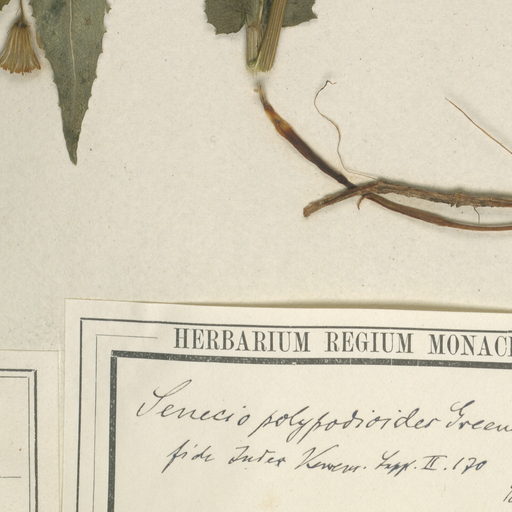 HERBARIUM REGIUM MONAC
Senecio polypodioides Green
fide Index Kewens. Supp. II. 170